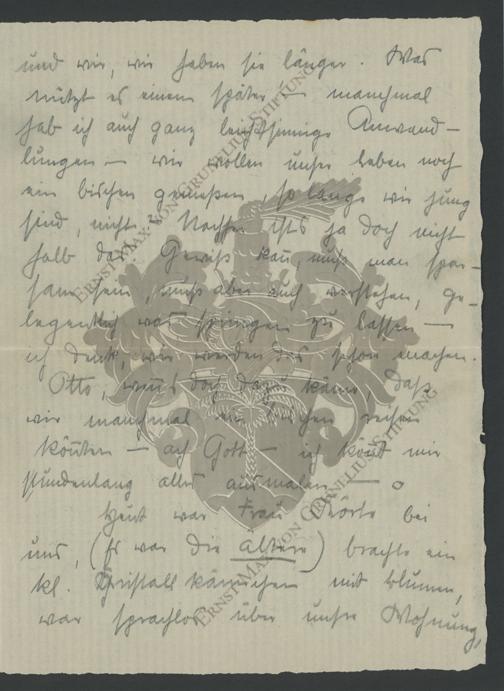 und wir, wir haben sie länger. Was
nützt es einem später – manchmal
hab ich auch ganz leichtsinnige Anwand-
lungen – wir wollen unser Leben noch
ein bischen genießen, solange wir jung
sind, nicht? Nachher ists ja doch nicht
halb da. Gewiß muß man spar-
sam sein, muß aber auch verstehen, ge-
legentlich was springen zu lassen –
ich denk, wir werden das schon machen.
Otto, wenns doch dazu käme, daß
wir manchmal ein bischen reisen
könnten – ach Gott – ich könnt mir
stundenlang alles ausmalen –
Heut war Frau bei
uns, (Es war die ältere) brachte ein
kl. Kristallkännchen mit Blumen,
war sprachlos über unsre Wohnung,
ERNST MAX VON GRUNELIUS-STIFTUNG
ERNST MAX VON GRUNELIUS-STIFTUNG